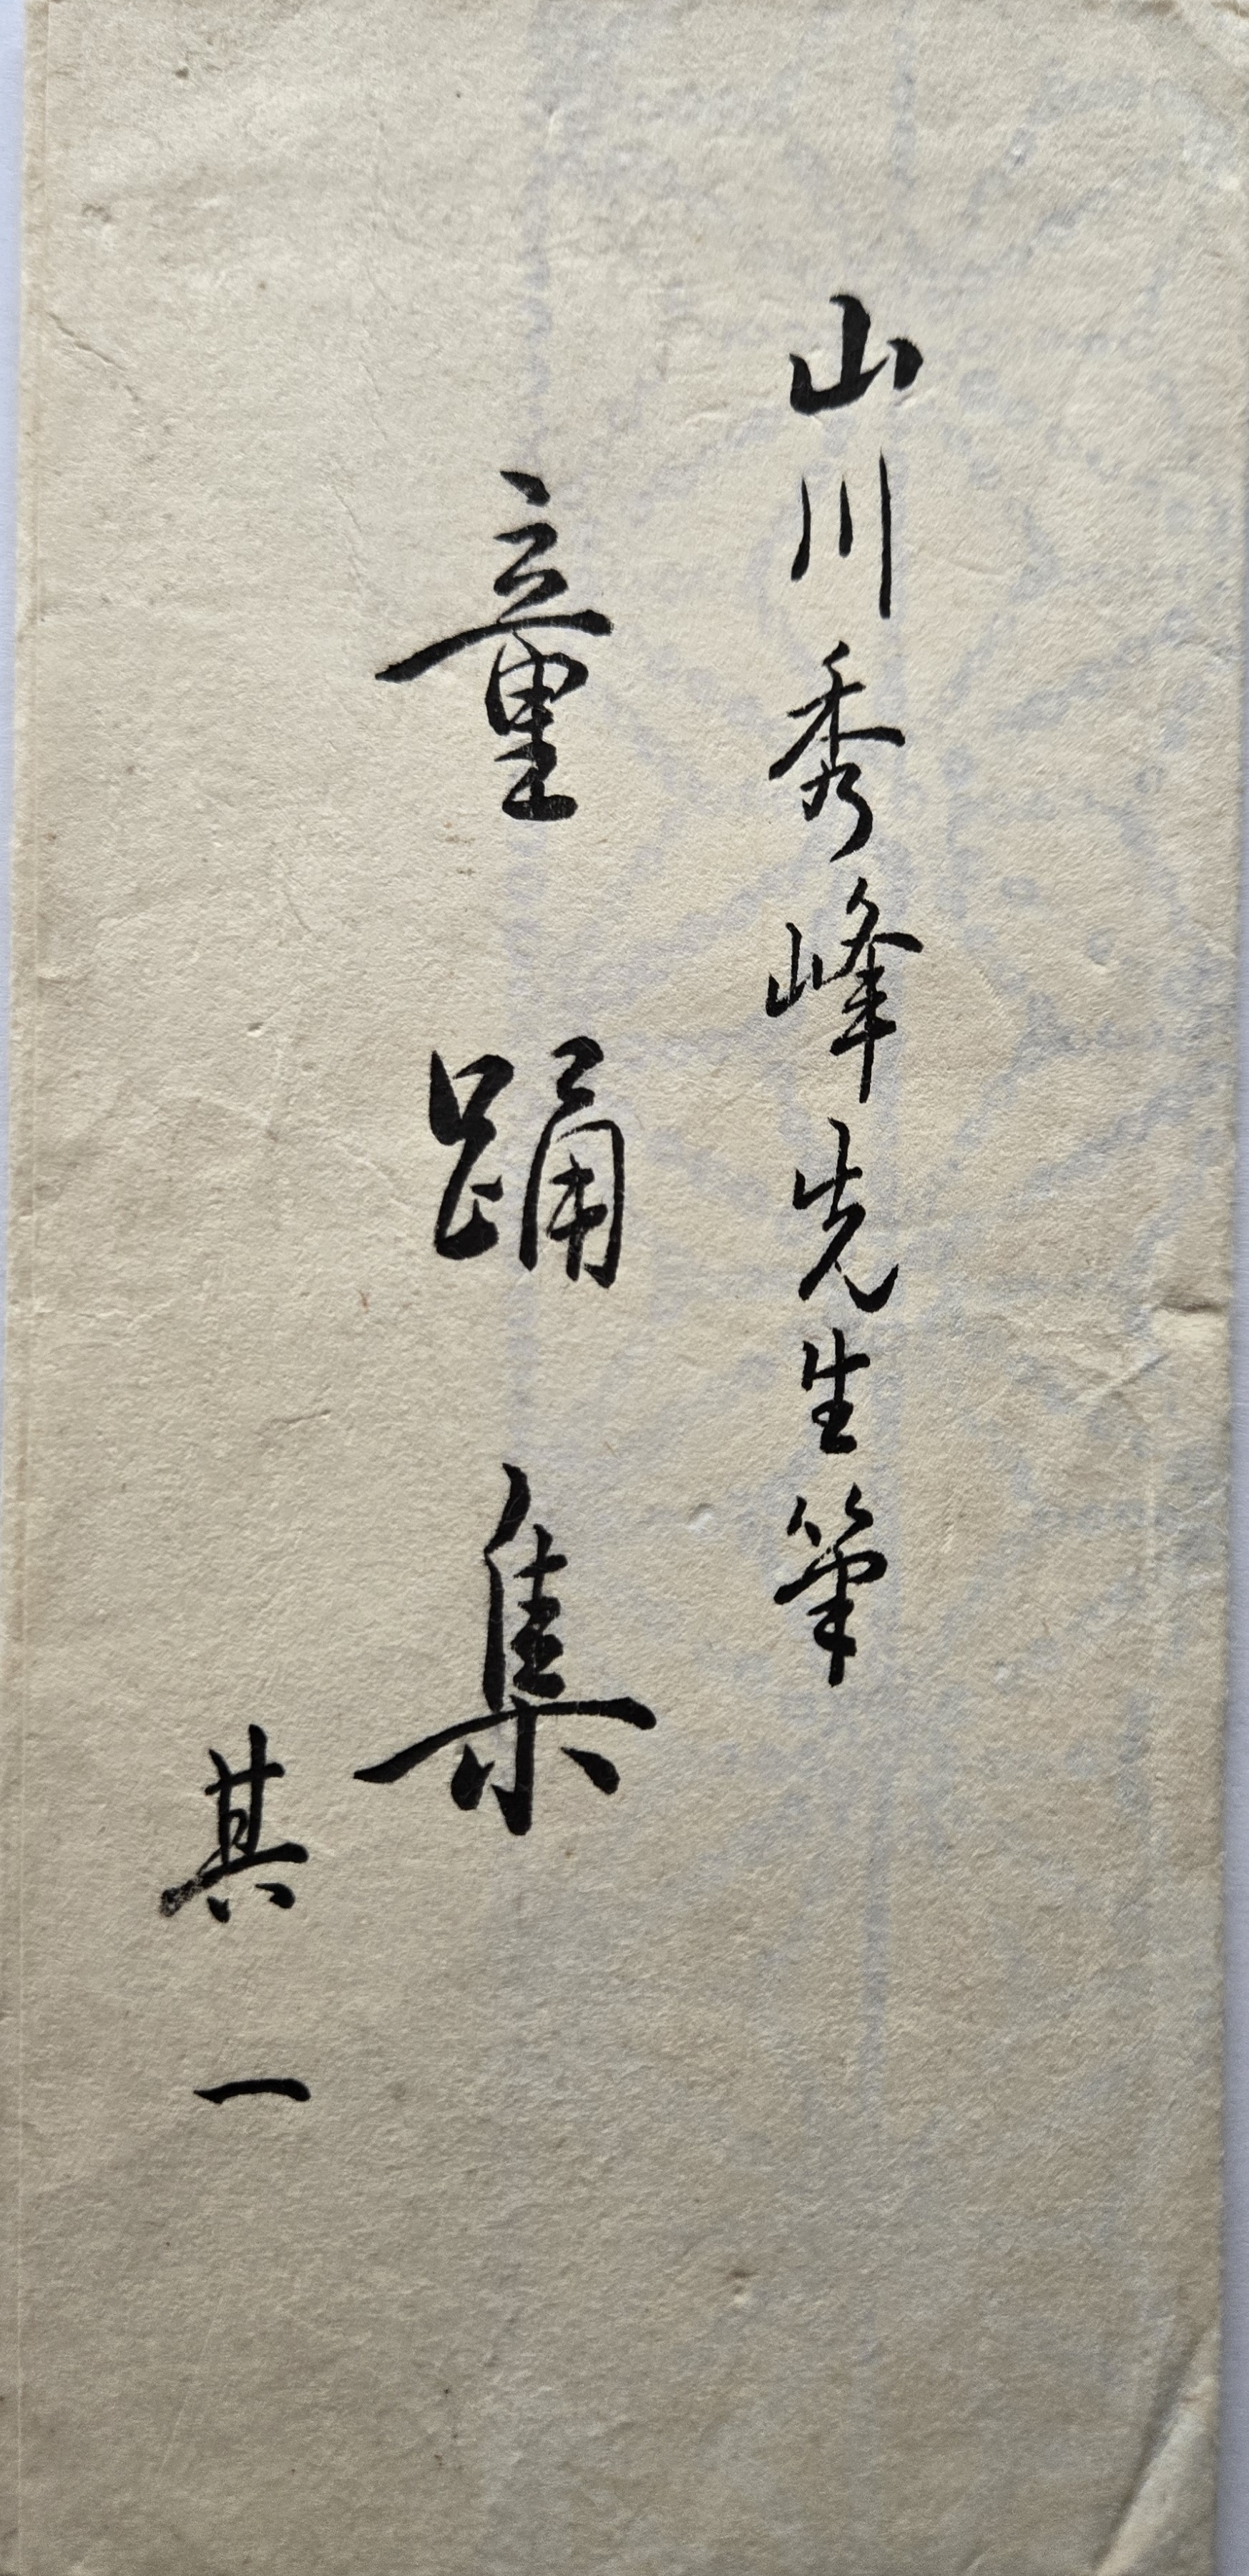 山川秀峰先生筆
童踊集
其一